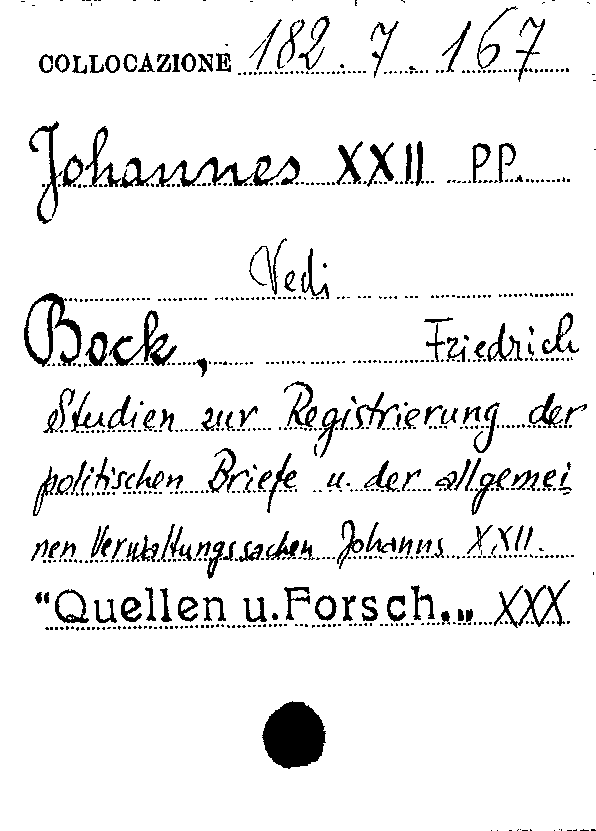 COLLOCAZIONE 182.7.167
Johannes XXII PP.
Vedi
Bock, Friedrich
Studien zur Registrierung der
politischen Briefe u. der allgemei
nen Verwaltungssachen Johanns XXII.
"Quellen u. Forsch.„ XXX